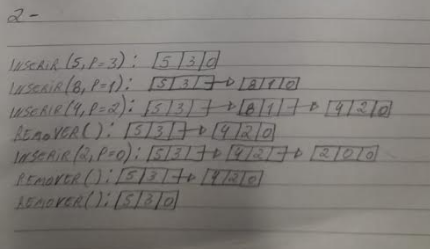 2-
INSERIR(5,P=3): [5|3|0]
INSERIR(8,P=1): [5|3|-]→[8|1|0]
INSERIR(4,P=2): [5|3|-]→[8|1|-]→[4|2|0]
REMOVER(): [5|3|-]→[4|2|0]
INSERIR(2,P=0): [5|3|-]→[4|2|-]→[2|0|0]
REMOVER(): [5|3|-]→[4|2|0]
REMOVER(): [5|3|0]